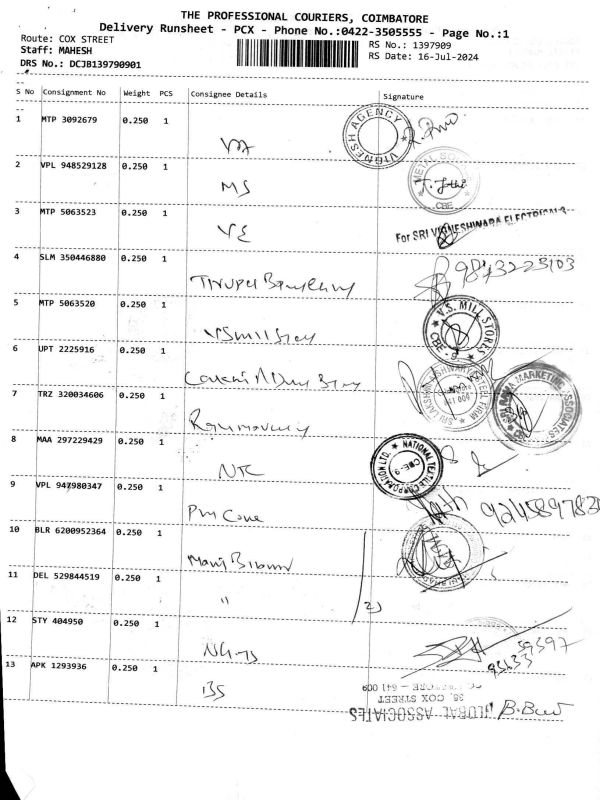 THE PROFESSIONAL COURIERS, COIMBATORE
Delivery Runsheet - PCX - Phone No.:0422-3505555 - Page No.:1
Route: COX STREET
RS No.: 1397909
Staff: MAHESH
RS Date: 16-Jul-2024
DRS No.: DCJB139790901
S No Consignment No Weight PCS Consignee Details Signature
1 MTP 3092679 0.250 1
VIGNESH AGENCY
2 VPL 948529128 0.250 1
MS
CBE
3 MTP 5063523 0.250 1
VE
For SRI VIGNESHWARA ELECTRICALS
4 SLM 350446880 0.250 1
9843223103
5 MTP 5063520 0.250 1
V.S. MILL STORES
CBE - 9
6 UPT 2225916 0.250 1
7 TRZ 320034606 0.250 1
MARKETING ASSOCIATES
8 MAA 297229429 0.250 1
NTC
NATIONAL TEXTILE CORPORATION LTD.
CBE-9
9 VPL 947980347 0.250 1
10 BLR 6200952364 0.250 1
11 DEL 529844519 0.250 1
"
2)
12 STY 404950 0.250 1
13 APK 1293936 0.250 1
BS
GLOBAL ASSOCIATES
36, COX STREET
- 641 009